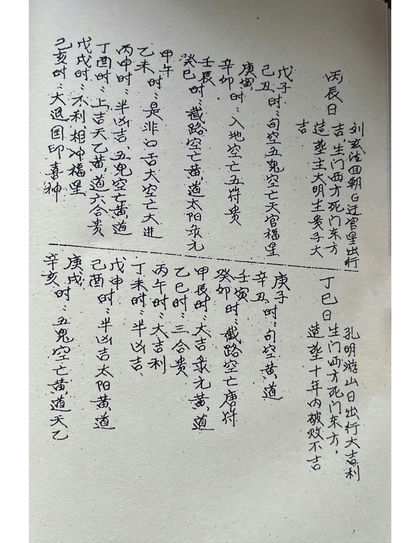 丙辰日
刘玄法回朝日迁官星出行
吉生门西方死门东方
造葬主大明生贵子大
吉
戊子时
己丑时：旬空五鬼空亡天官福星
庚寅时
辛卯时：入地空亡五符贵
壬辰
癸巳时：截路空亡黄道太阳录元
甲午
乙未时：是非口舌大空亡大进
丙申时：半凶吉五鬼空亡黄道
丁酉时：上吉天乙黄道六合贵
戊戌时：不利相冲福星
己亥时：大退国印喜神
丁巳日
孔明游山日出行大吉利
生门西方死门东方，
造葬十年内破败不吉
庚子时
辛丑时：旬空黄道
壬寅
癸卯时：截路空亡唐符
甲辰时：大吉录元黄道
乙巳时：三合贵
丙午时：大吉利
丁未时：半凶吉
戊申时
己酉时：半凶吉太阳黄道
庚戌
辛亥时：五鬼空亡黄道天乙